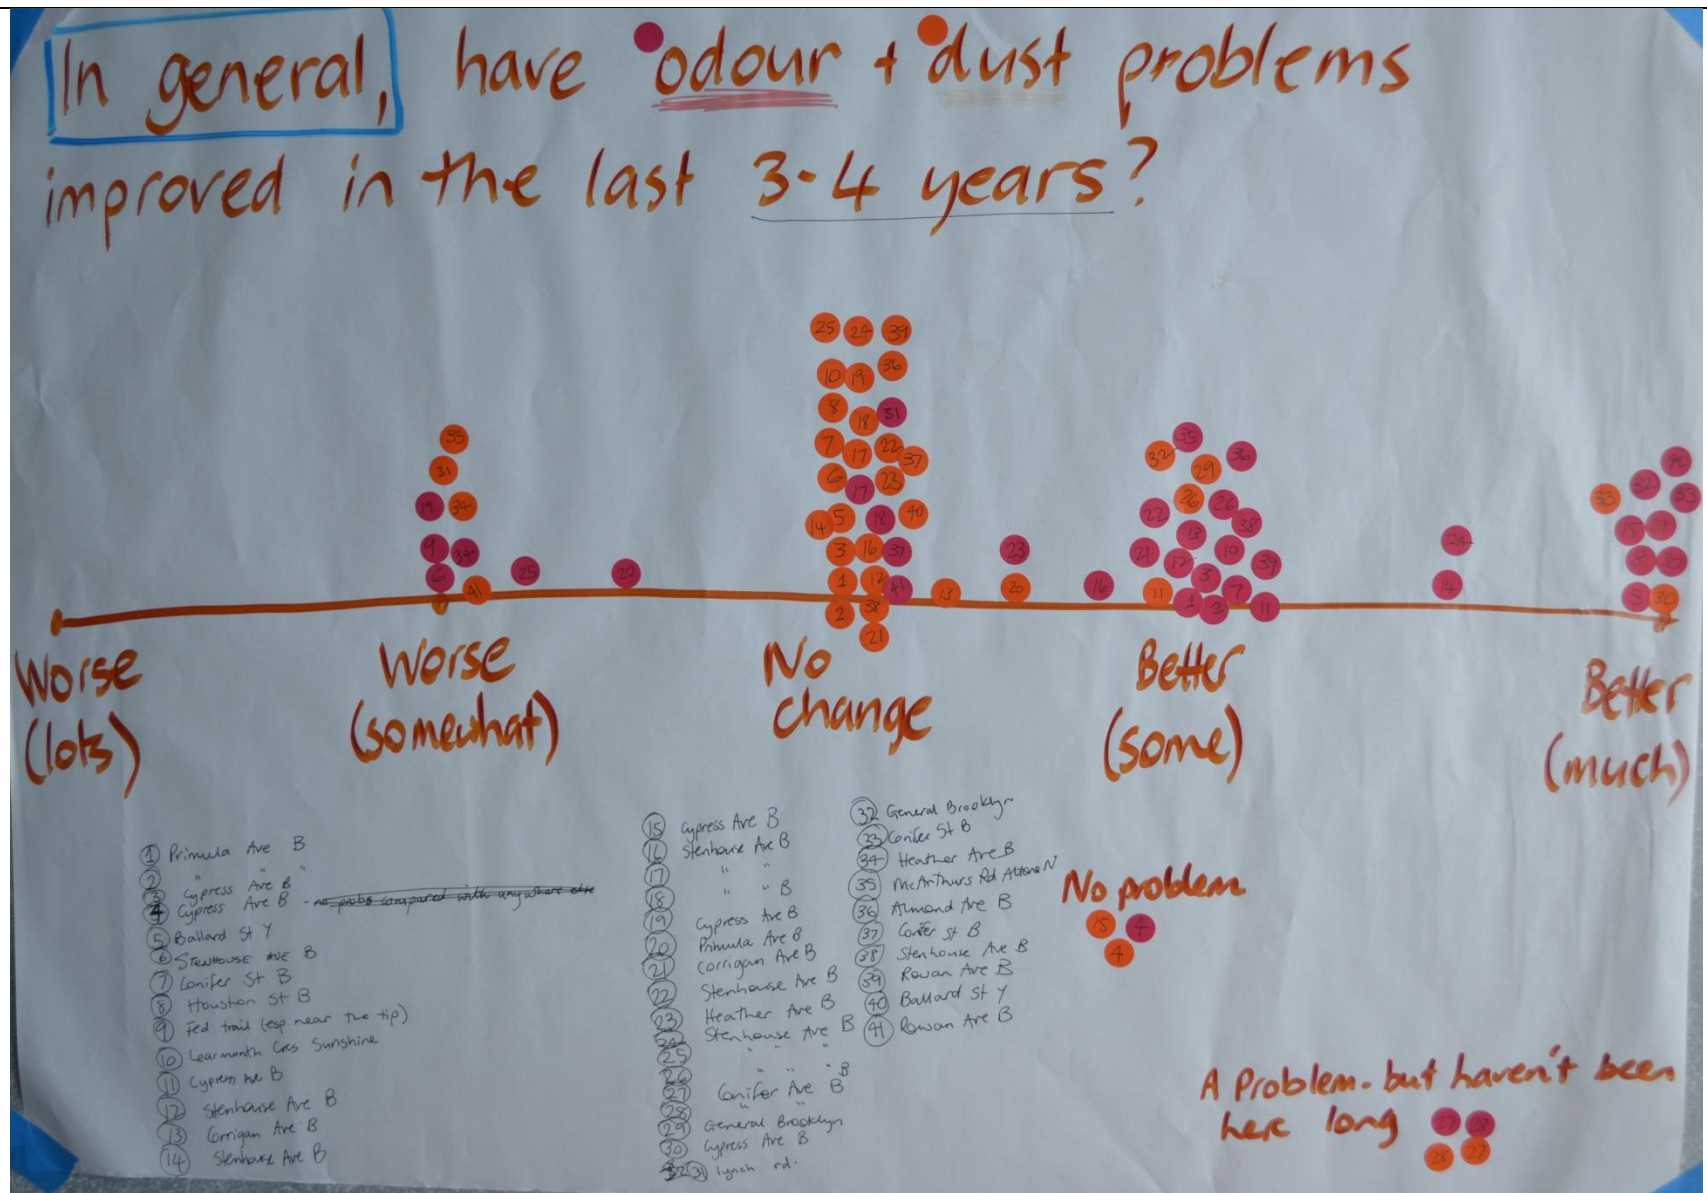 In general, have odour + dust problems
improved in the last 3-4 years?
25 24 39
10 19 36
8 18 31
7 17 22 37
6 17 23
14 5 18 40
3 16 37
1 12 41 13
2 38
21
35
31
19 34
9 34
6 41
25 20
23
20
16
35
32 29 36
22 26 26
13 38
21 12 10 39
3 7
11 1 2 11
24
14
40
33 32 33
15 29
8
5 30
Worse
(lots)
Worse
(somewhat)
No
change
Better
(some)
Better
(much)
1 Primula Ave B
2 " " "
3 Cypress Ave B
4 Cypress Ave B - no probs compared with anywhere else
5 Ballard St Y
6 STENHOUSE AVE B
7 Conifer St B
8 Houston St B
9 Fed trail (esp near the tip)
10 Learmonth Cres Sunshine
11 Cypress Ave B
12 Stenhouse Ave B
13 Corrigan Ave B
14 Stenhouse Ave B
15 Cypress Ave B
16 Stenhouse Ave B
17 " "
18 " " B
19 Cypress Ave B
20 Primula Ave B
21 Corrigan Ave B
22 Stenhouse Ave B
23 Heather Ave B
24 Stenhouse Ave B
25 " " "
26 " " " B
27 Conifer Ave B
28 " "
29 General Brooklyn
30 Cypress Ave B
31 Lynch rd.
32 General Brooklyn
33 Conifer St B
34 Heather Ave B
35 McArthurs Rd Altona N
36 Almond Ave B
37 Conifer St B
38 Stenhouse Ave B
39 Rowan Ave B
40 Ballard St Y
41 Rowan Ave B
No problem
15 4
4
A Problem - but haven't been
here long
27 28
28 27